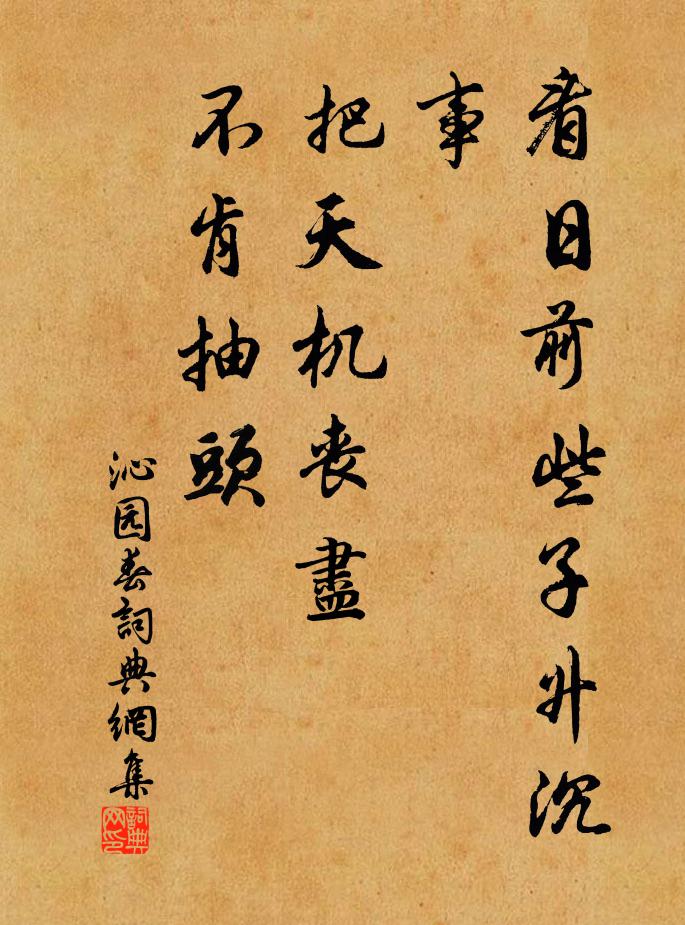 看日前些子升沉
事
把天机丧盡
不肯抽頭
沁园春詞典網集
詞典网印